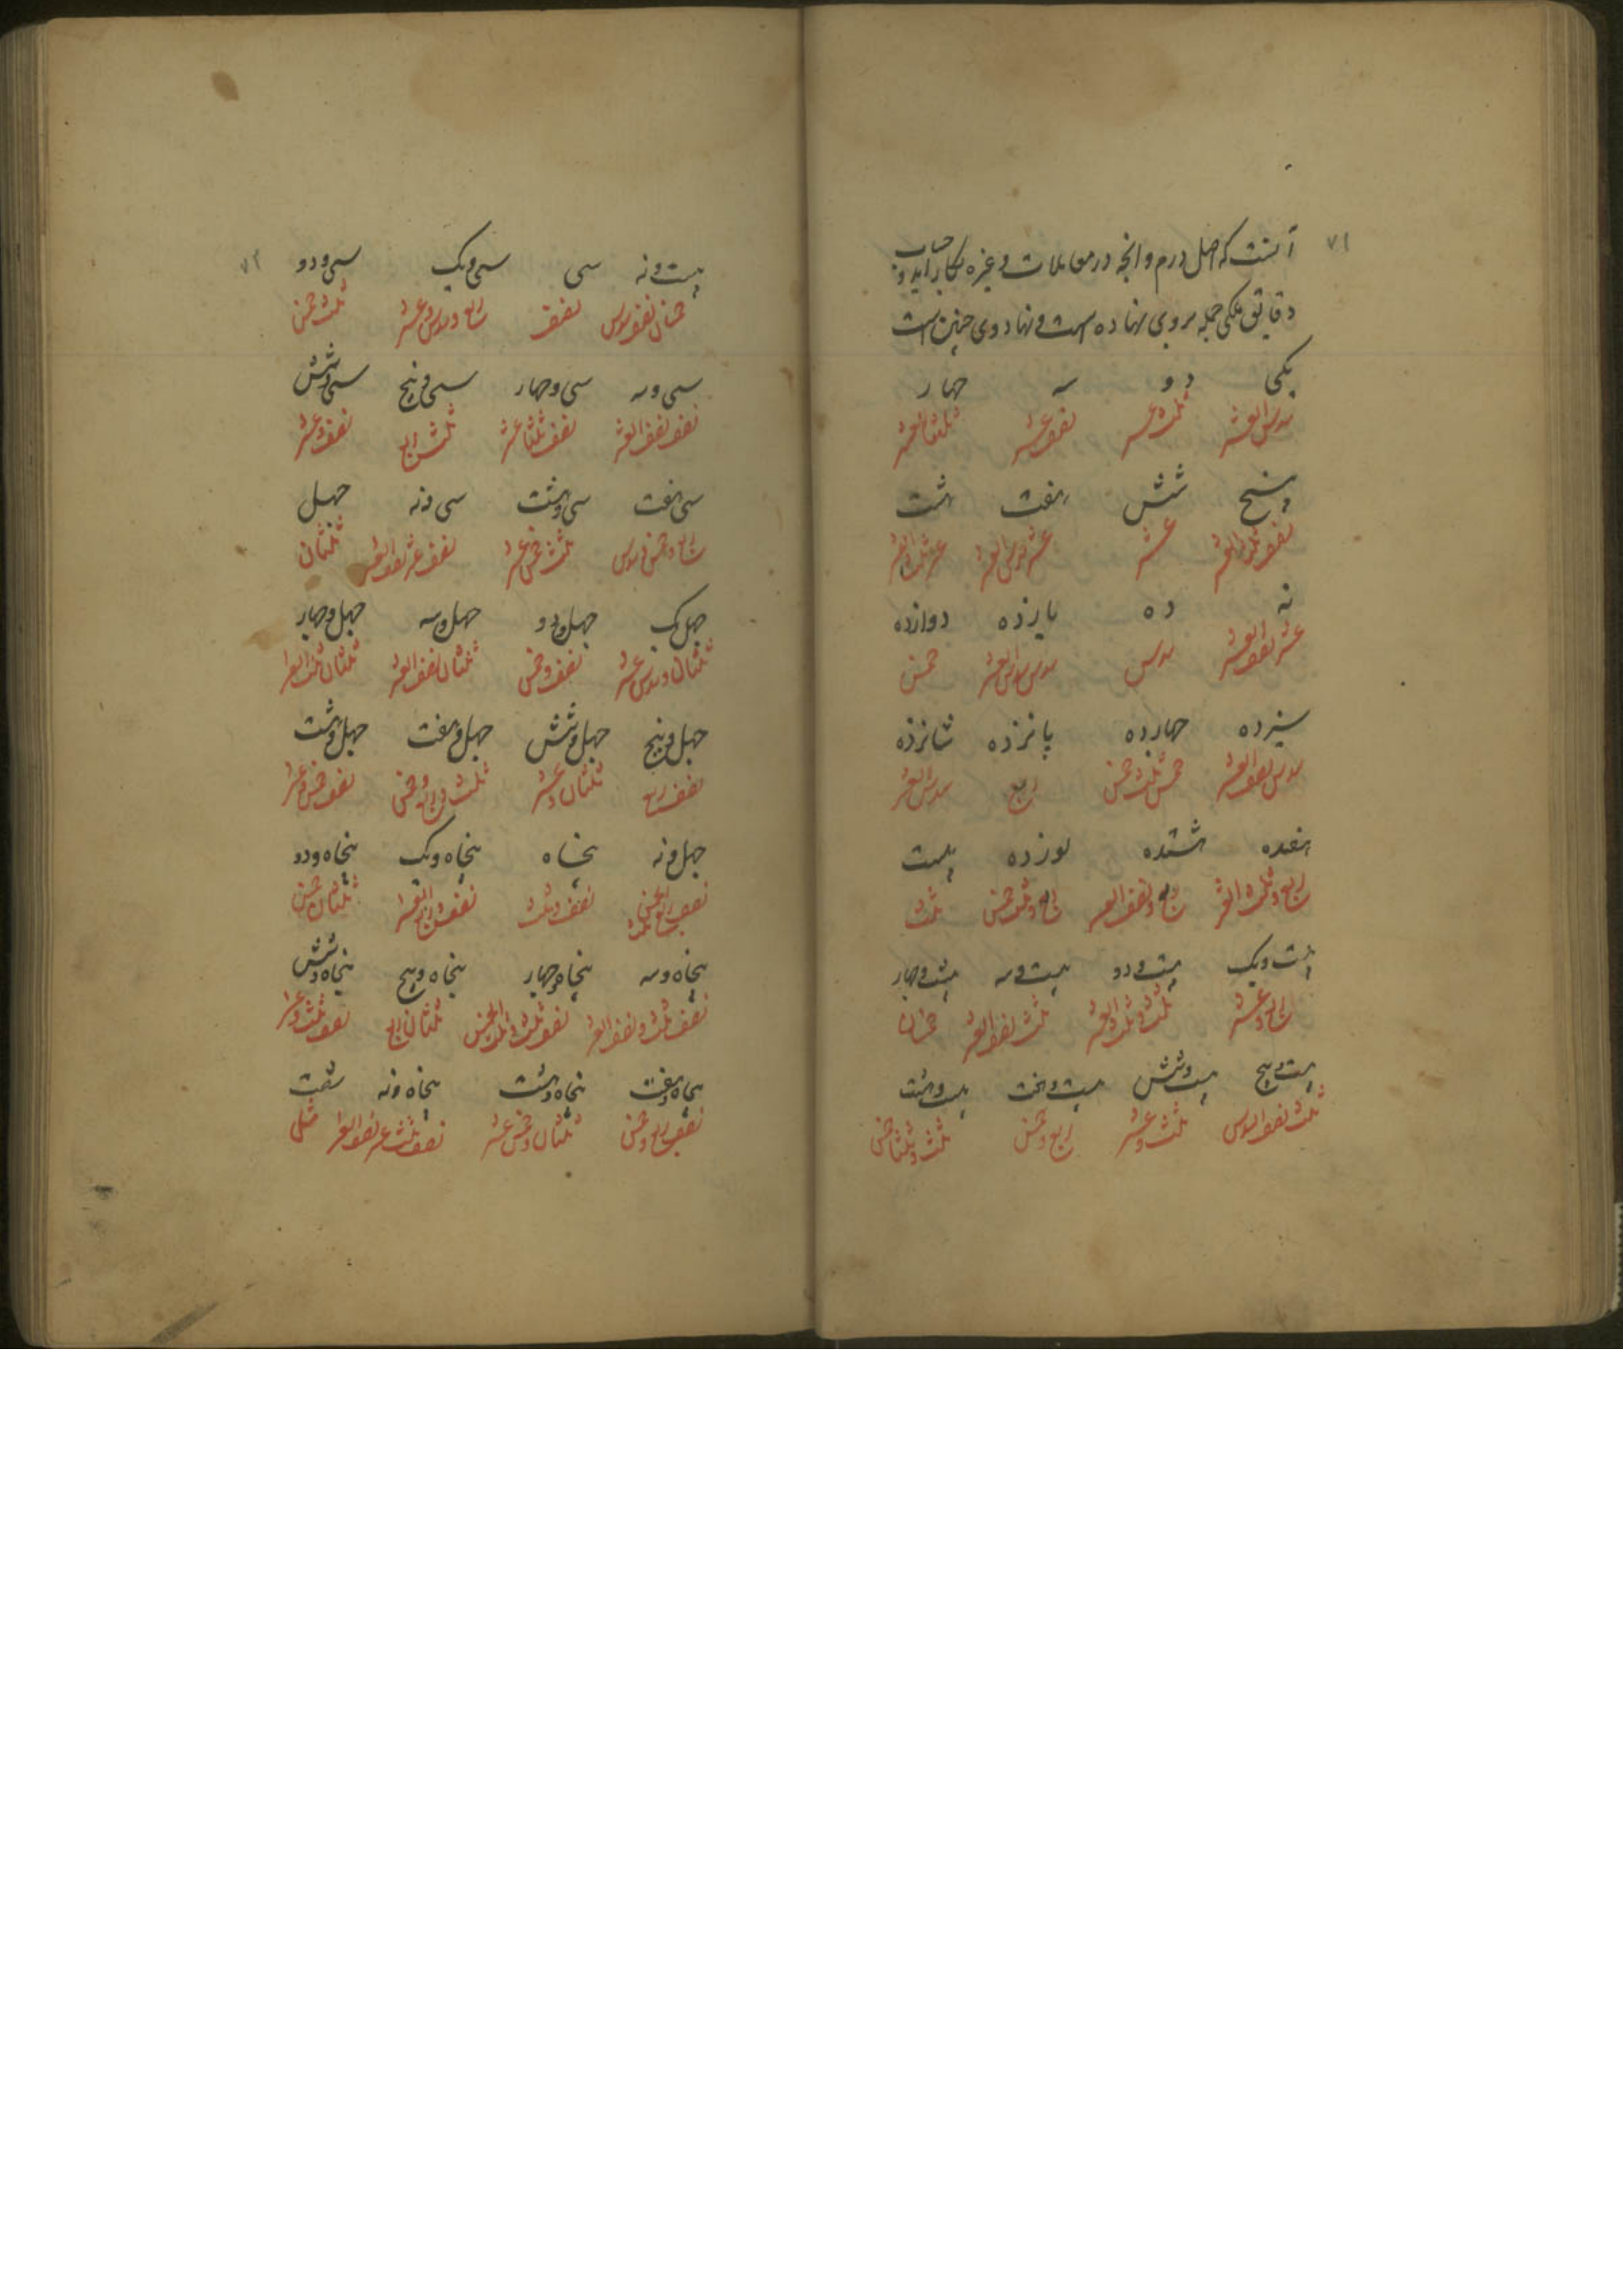 ۷۱
آنست که اصل درم وانجه در معاملات وغیره بکار آید وحساب
دقایق فلکی جمله بر وی نهاده است ونهاد وی چنین است
یکی دو سه چهار
سدس العشر ثلث عشر نصف عشر ثلثا العشر
پنج شش هفت هشت
نصف وثلث العشر عشر عشر وسدس العشر عشر وثلث العشر
نه ده یازده دوازده
عشر نصف العشر سدس سدس وسدس العشر خمس
سیزده چهارده پانزده شانزده
سدس نصف العشر خمس ثلث خمس ربع سدس العشر
هفده هشتده نوزده بیست
ربع وثلث العشر ربع ونصف العشر ربع وثلث خمس ثلث
بیست ویک بیست ودو بیست وسه بیست وچهار
ربع وعشر ثلث وثلث العشر ثلث نصف العشر خمسان
بیست وپنج بیست وشش بیست وهفت بیست وهشت
ثلث نصف السدس ثلث وعشر ربع وخمس ثلث وثلثا خمس
۷۲
بیست ونه سی سی ویک سی ودو
خمسان نصف سدس نصف ربع وسدس وعشر ثلث خمس
سی وسه سی وچهار سی وپنج سی وشش
نصف نصف العشر نصف ثلثا عشر ثلث ربع نصف وعشر
سی هفت سی وهشت سی ونه چهل
ربع وخمس وسدس ثلث خمس عشر نصف عشر نصف العشر ثلثان
چهل یک چهل ودو چهل وسه چهل وچهار
ثلثان وسدس عشر نصف وخمس ثلثان نصف العشر ثلثان ثلث العشر
چهل وپنج چهل وشش چهل وهفت چهل وهشت
نصف ربع ثلثان وعشر ثلث وربع وخمس نصف خمس وعشر
چهل ونه پنجاه پنجاه ویک پنجاه ودو
نصف ربع ثلث الخمس نصف وثلث نصف وربع العشر ثلثان خمس
پنجاه وسه پنجاه وچهار پنجاه وپنج پنجاه وشش
نصف ثلث ونصف العشر نصف وثلث وثلث الخمس ثلثان ربع نصف ثلث وعشر
پنجاه وهفت پنجاه وهشت پنجاه ونه شصت
نصف ربع وخمس ثلثان وخمس عشر نصف ثلث عشر نصف العشر مثلی